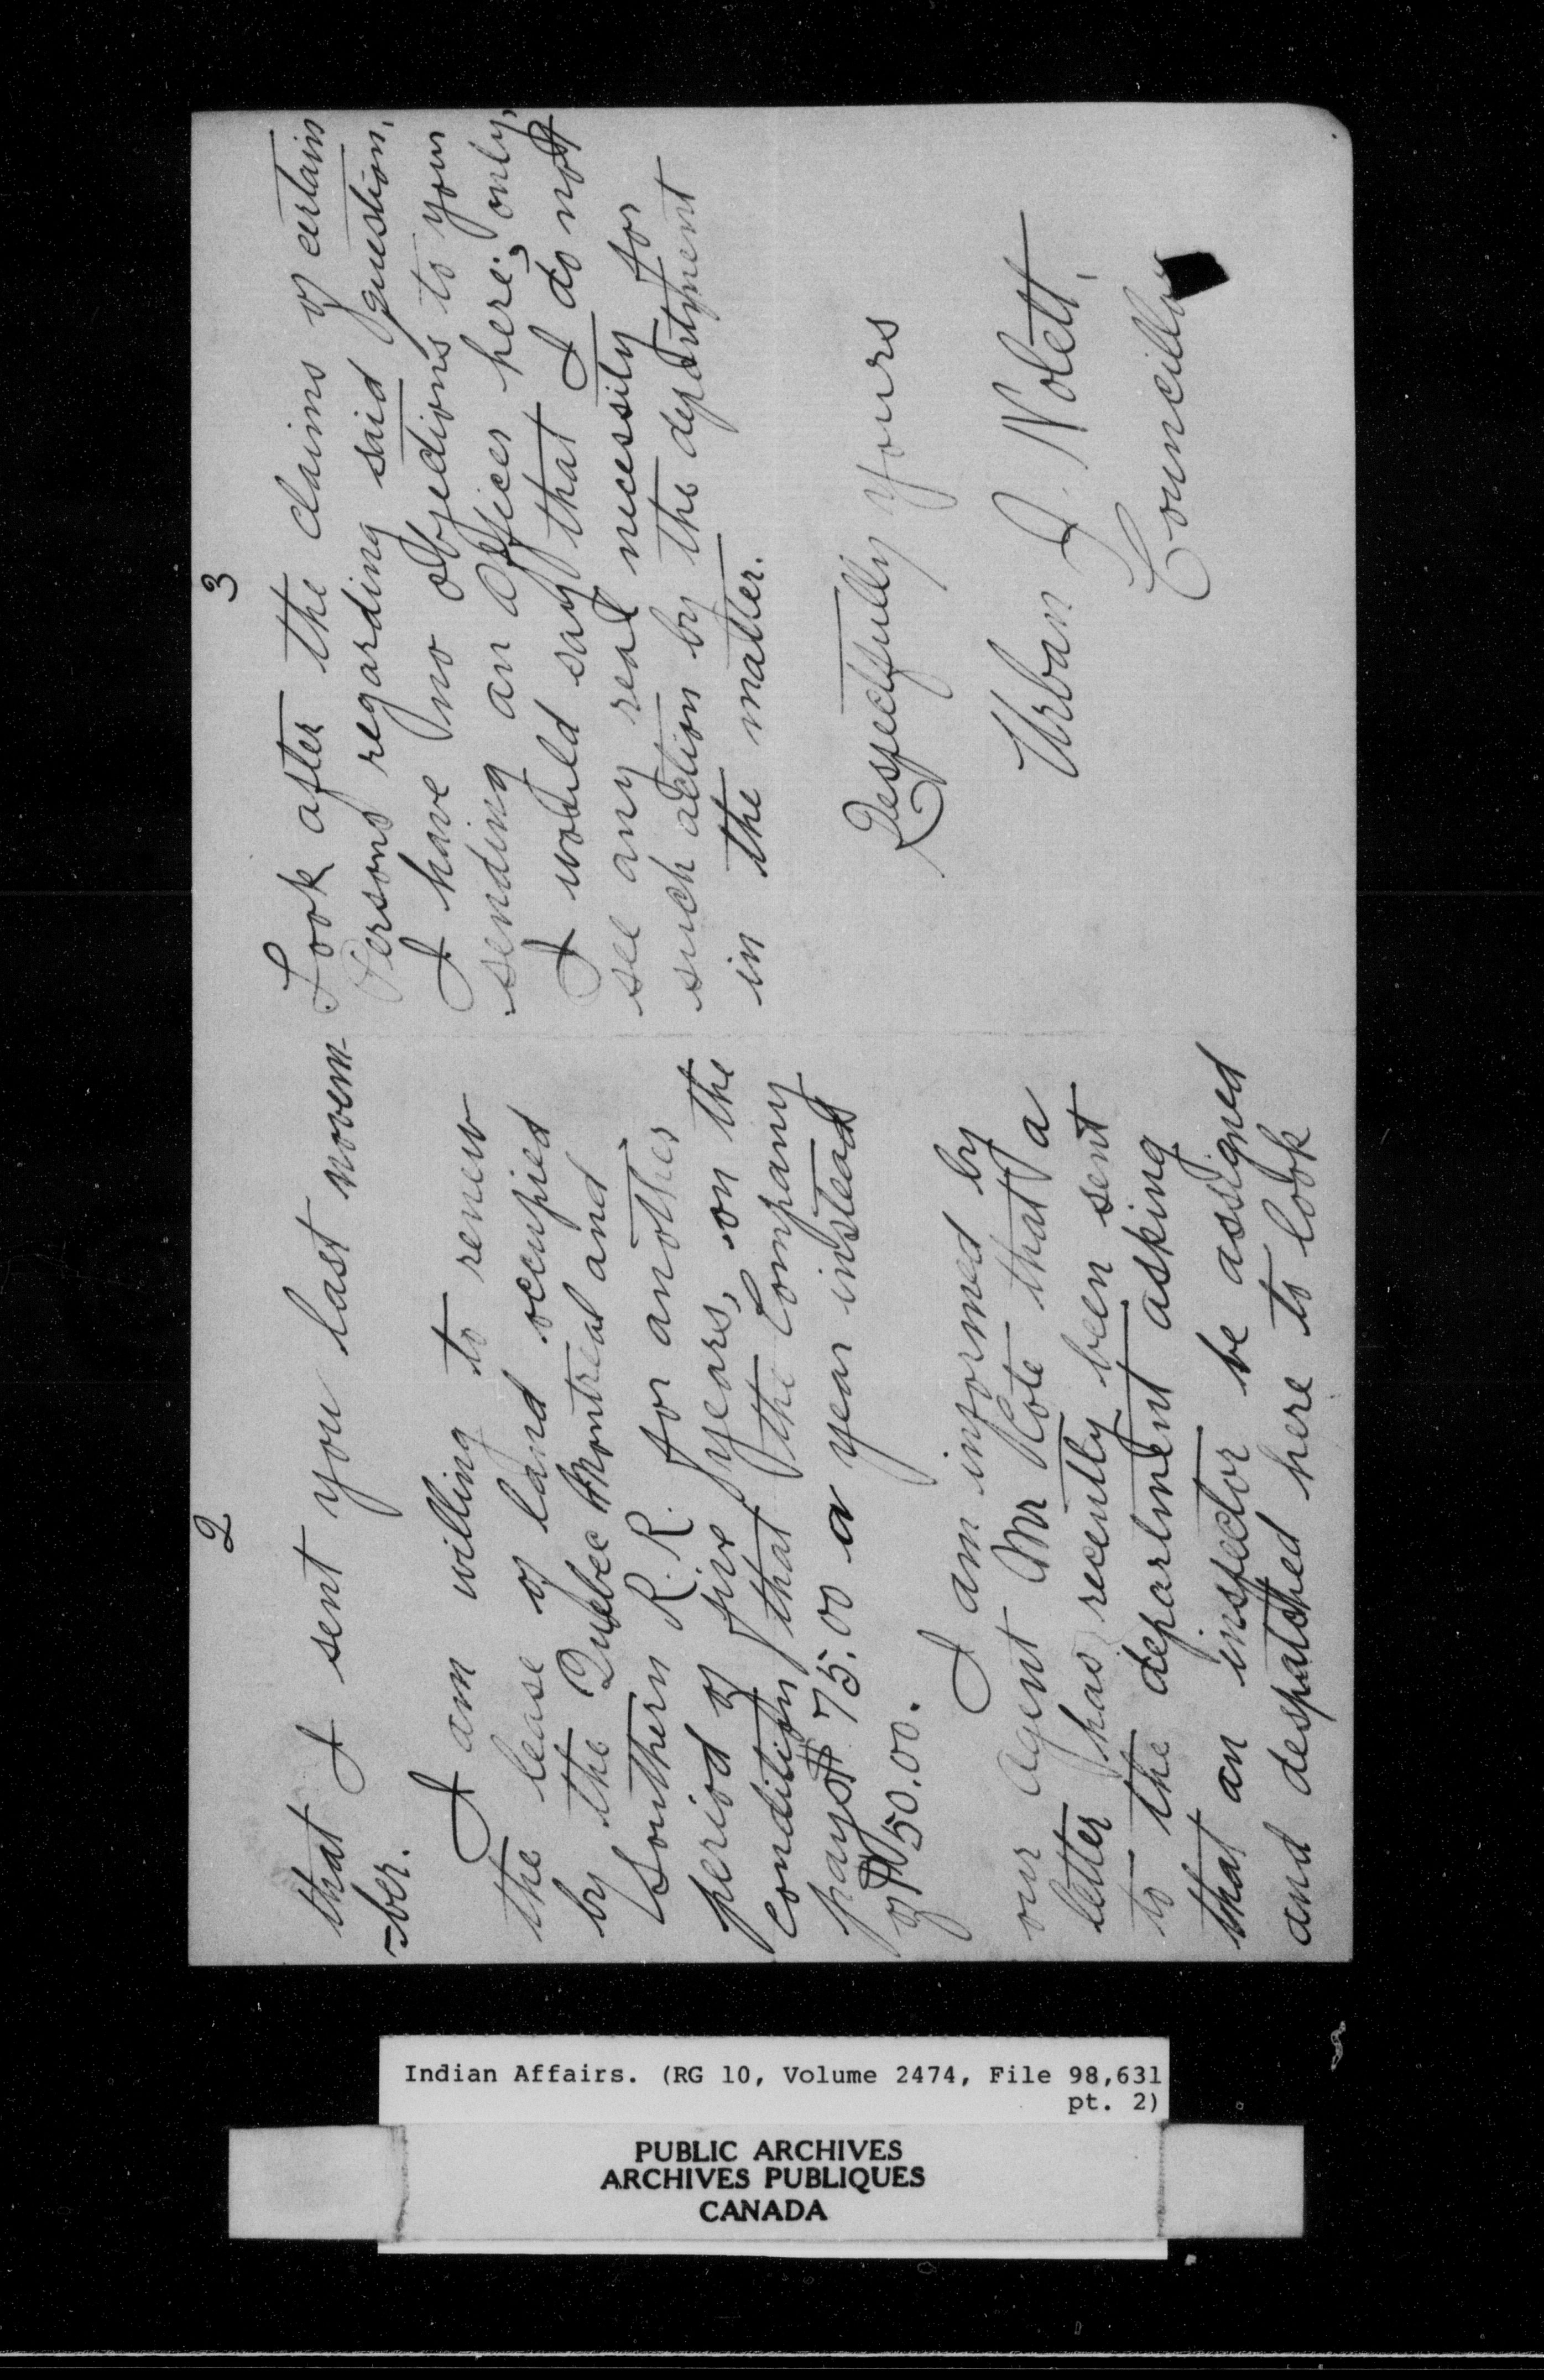 2
that I sent you last novem-
-ber.
I am willing to renew
the lease of land occupied
by the Quebec Montreal and
Southern R. R. for another
period of five years, on the
condition that the Company
pays $75.00 a year instead
of $50.00.
I am informed by
our agent Mr Cote that a
letter has recently been sent
to the department asking
that an inspector be assigned
and despatched here to look
3
Look after the claims of certain
Persons regarding said question.
I have no objections to your
sending an officer here; only,
I would say that I do not
see any real necessity for
such action by the department
in the matter.
Respectfully yours
Urban J. Nolett,
Councillor
Indian Affairs. (RG 10, Volume 2474, File 98,631
pt. 2)
PUBLIC ARCHIVES
ARCHIVES PUBLIQUES
CANADA